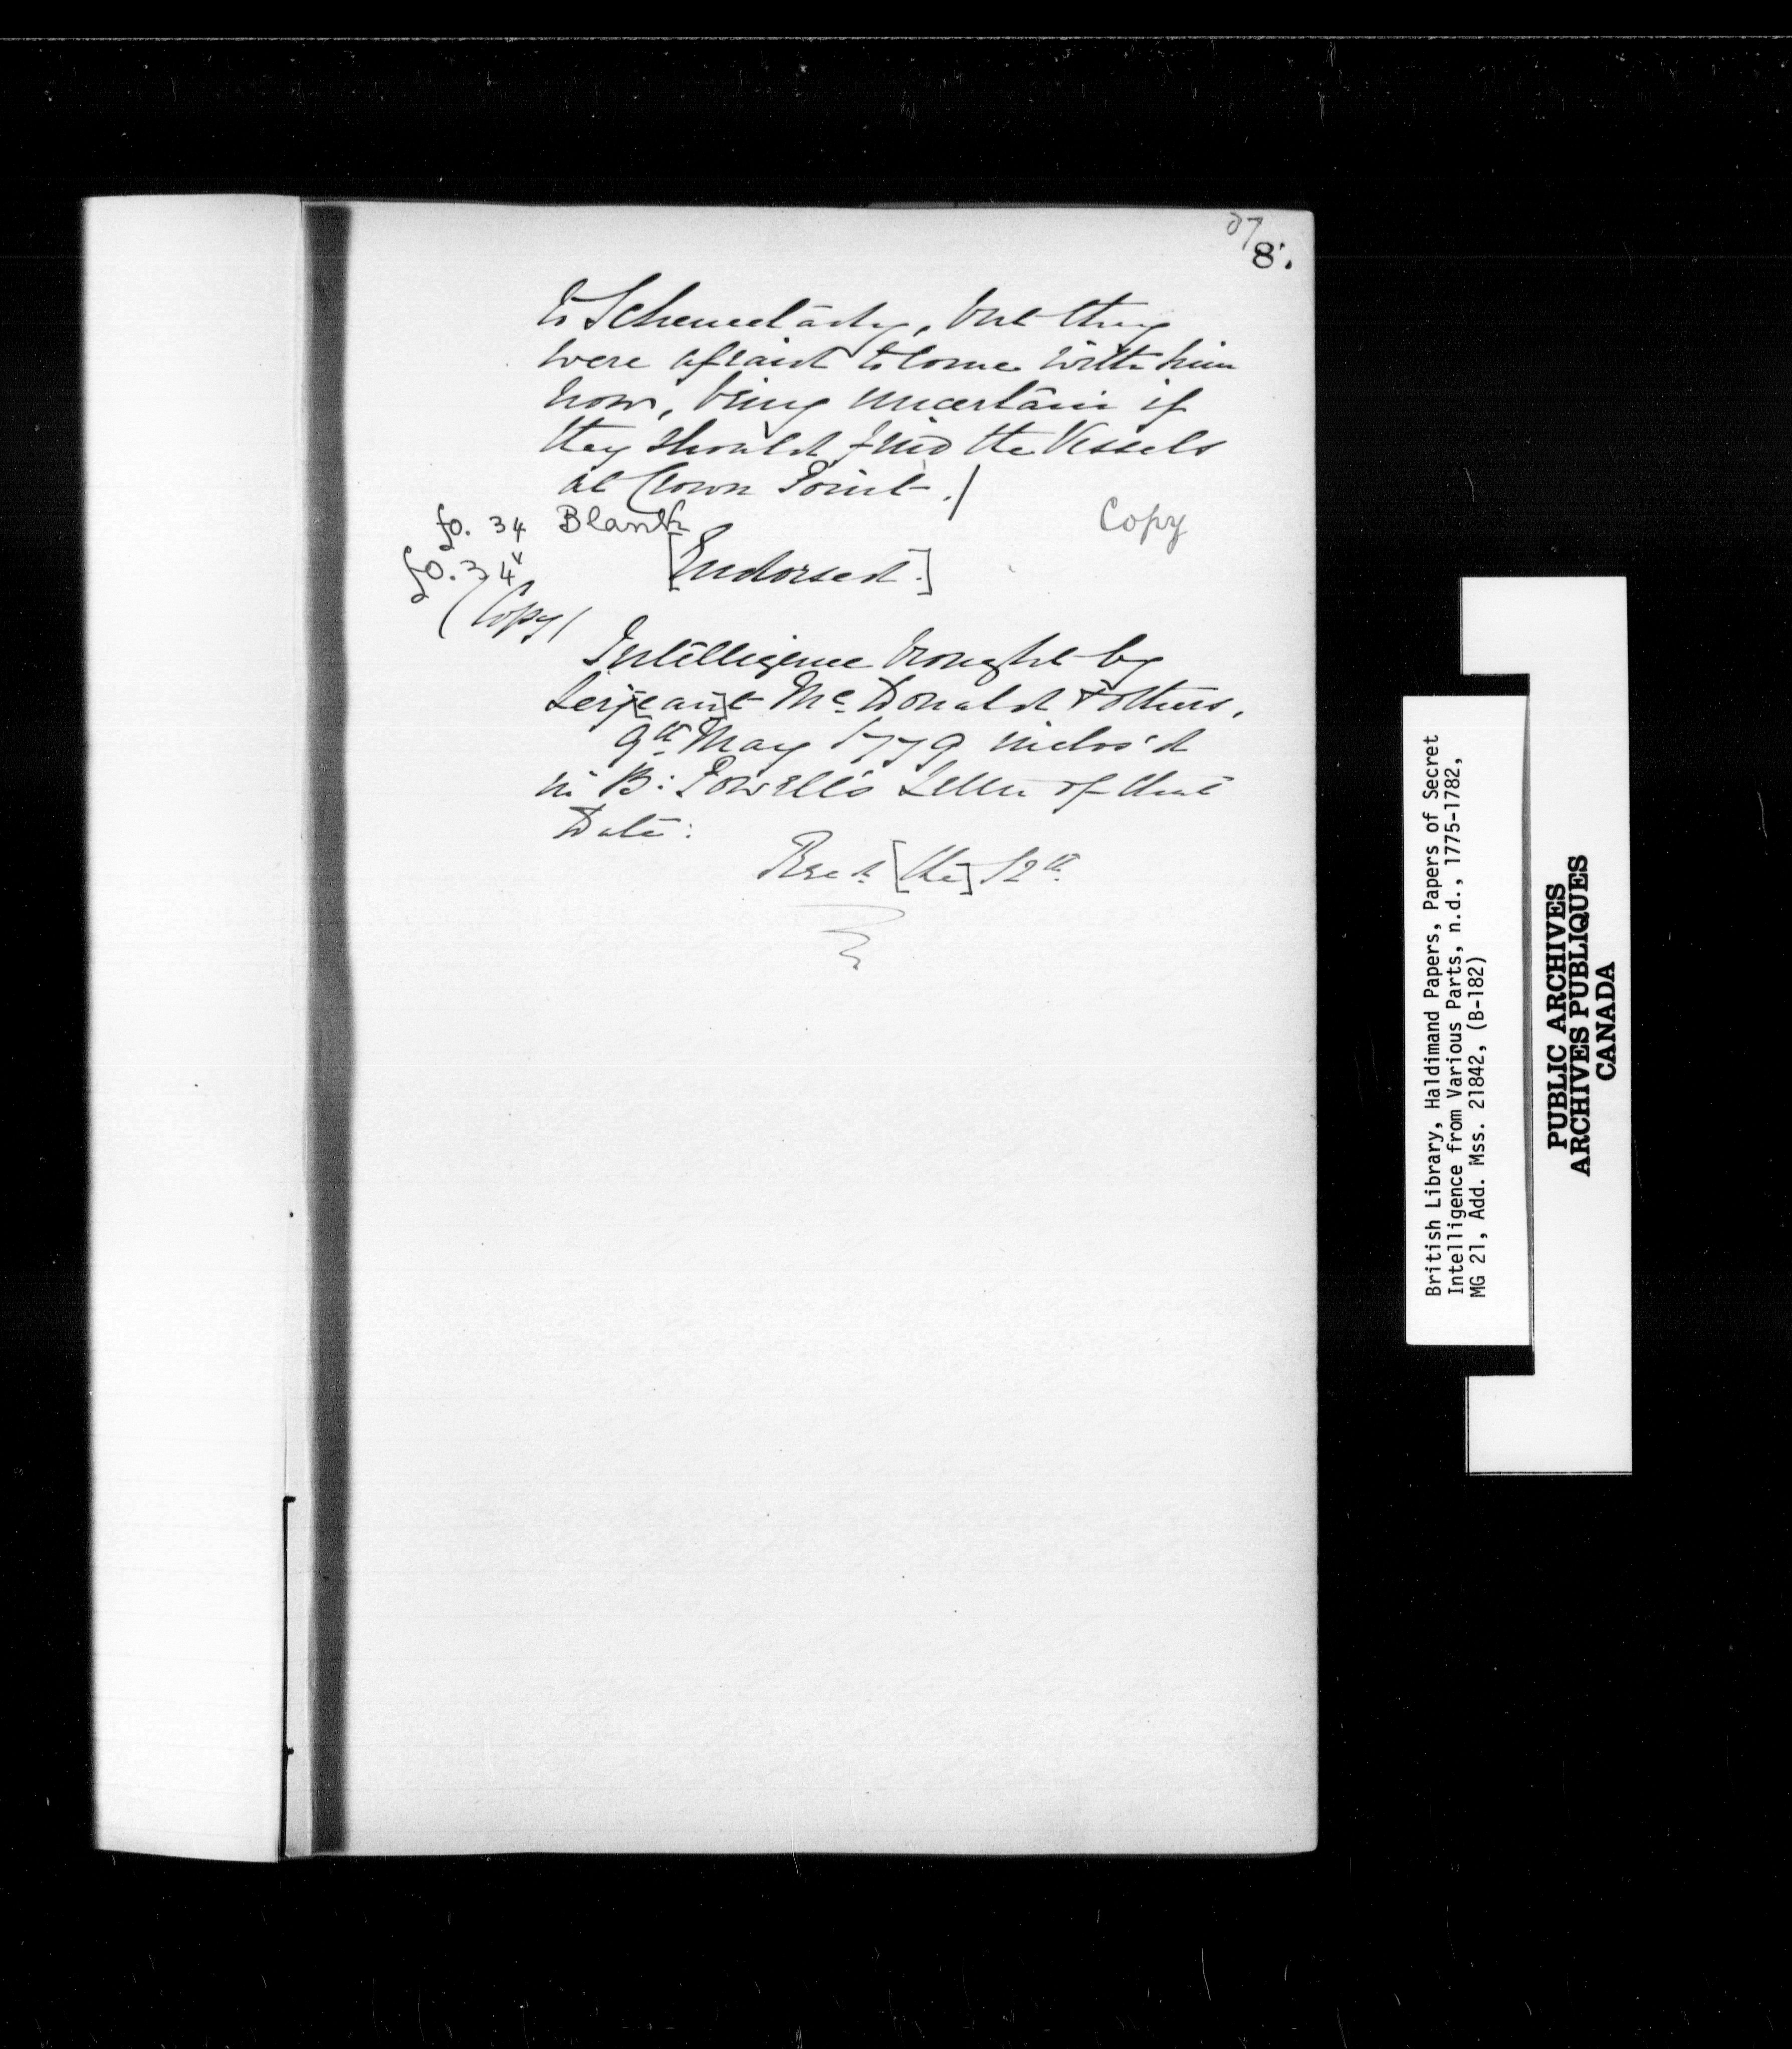 87
8.
to Schenectady, but they
were afraid to Come with him
now, being uncertain if
they should find the Vessels
at Crown Point./
fo. 34 Blank
Copy
fo. 34v
[Endorsed.]
(Copy)
Intelligence brought by
Serj[ean]t Mc. Donald & others,
9th May 1779 inclos'd
in B: Powell's Letter of that
Date:
Rec'd. [the] 12th.
British Library, Haldimand Papers, Papers of Secret
Intelligence from Various Parts, n.d., 1775-1782,
MG 21, Add. Mss. 21842, (B-182)
PUBLIC ARCHIVES
ARCHIVES PUBLIQUES
CANADA